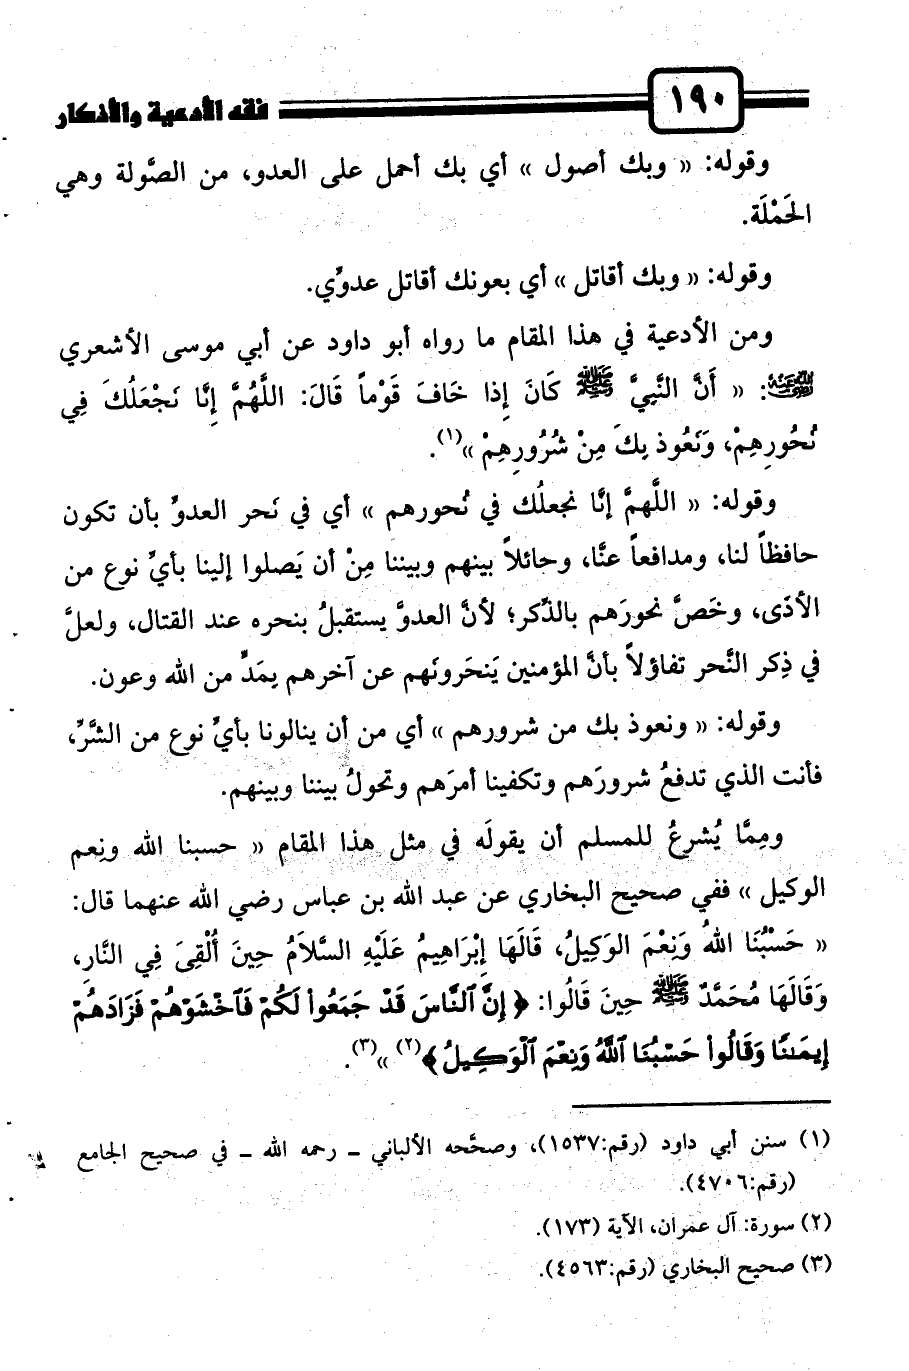 ١٩٠
فقه الأدعية والأذكار
وقوله: « وبك أصول » أي بك أحمل على العدو، من الصَّولة وهي
الحَمْلَة.
وقوله: « وبك أقاتل » أي بعونك أقاتل عدوِّي.
ومن الأدعية في هذا المقام ما رواه أبو داود عن أبي موسى الأشعري
رضي الله عنه: « أَنَّ النَّبِيَّ ﷺ كَانَ إِذا خَافَ قَوْماً قَالَ: اللَّهُمَّ إِنَّا نَجْعَلُكَ فِي
نُحُورِهِمْ، وَنَعُوذ بِكَ مِنْ شُرُورِهِمْ »(١).
وقوله: « اللَّهمَّ إنَّا نجعلُك في نُحورهم » أي في نَحر العدوِّ بأن تكون
حافظاً لنا، ومدافعاً عنَّا، وحائلاً بينهم وبيننا مِنْ أن يَصلوا إلينا بأيِّ نوع من
الأذَى، وخَصَّ نحورَهم بالذِّكر؛ لأنَّ العدوَّ يستقبلُ بنحره عند القتال، ولعلَّ
في ذِكر النَّحر تفاؤلاً بأنَّ المؤمنين يَنحَرونَهم عن آخرهم بِمَدٍّ من الله وعون.
وقوله: « ونعوذ بك من شرورهم » أي من أن ينالونا بأيِّ نوع من الشَّرِّ،
فأنت الذي تدفعُ شرورَهم وتكفينا أمرَهم وتحولُ بيننا وبينهم.
ومِمَّا يُشرعُ للمسلم أن يقولَه في مثل هذا المقام « حسبنا الله ونِعم
الوكيل » ففي صحيح البخاري عن عبد الله بن عباس رضي الله عنهما قال:
« حَسْبُنَا اللهُ وَنِعْمَ الوَكِيلُ، قَالَهَا إِبْرَاهِيمُ عَلَيْهِ السَّلاَمُ حِينَ أُلْقِىَ فِي النَّارِ،
وَقَالَهَا مُحَمَّدٌ ﷺ حِينَ قَالُوا: ﴿ إِنَّ ٱلنَّاسَ قَدْ جَمَعُوا۟ لَكُمْ فَٱخْشَوْهُمْ فَزَادَهُمْ
إِيمَـٰنًا وَقَالُوا۟ حَسْبُنَا ٱللَّهُ وَنِعْمَ ٱلْوَكِيلُ ﴾(٢) »(٣).
(١) سنن أبي داود (رقم:١٥٣٧)، وصحَّحه الألباني ـ رحمه الله ـ في صحيح الجامع
(رقم:٤٧٠٦).
(٢) سورة: آل عمران، الآية (١٧٣).
(٣) صحيح البخاري (رقم:٤٥٦٣).